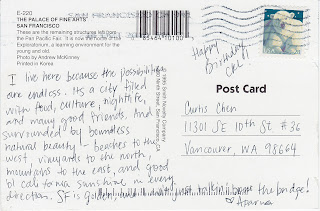 E-220
THE PALACE OF FINE ARTS
SAN FRANCISCO
These are the remaining structures left from
the Pan Pacific Fair. It is now the home of the
Exploratorium, a learning environment for the
young and old.
Photo by Andrew McKinney
Printed in Korea
SAN FRANCISCO
Happy
Birthday
I live here because the possibilities
are endless. Its a city filled
with food, culture, nightlife,
and many good friends. And
surrounded by boundless
natural beauty - beaches to the
west, vineyards to the north,
mountains to the east, and good
ol' california sunshine in every
direction. SF is golden, and I'm not just talkin' bout the bridge!
Aparna
Post Card
Curtis Chen
11301 SE 10th St. #36
Vancouver, WA 98664